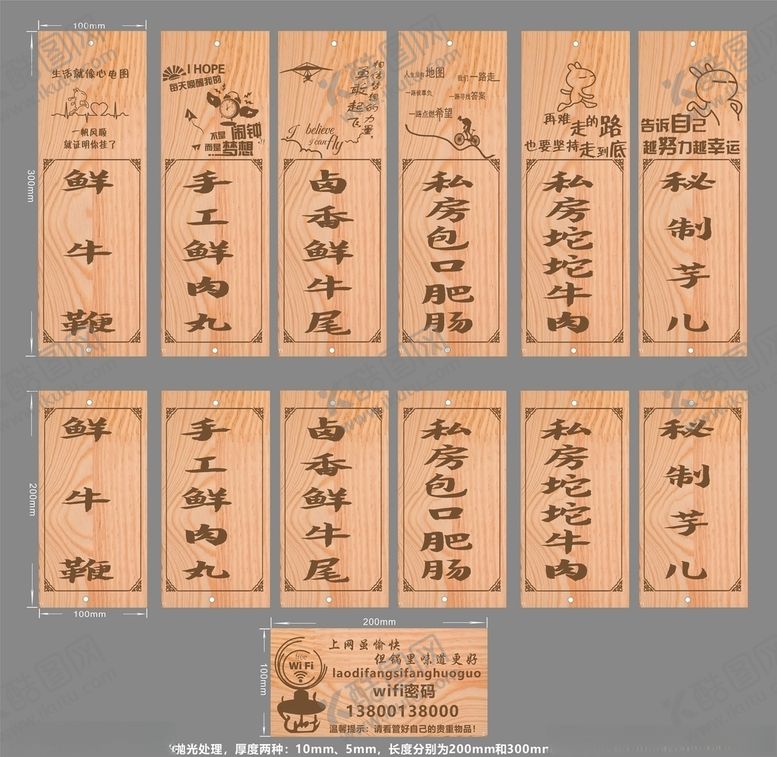 100mm
300mm
生活就像心电图
一帆风顺
就证明你挂了
鲜牛鞭
I HOPE
每天唤醒我的
不是闹钟
而是梦想
手工鲜肉丸
相信梦想的力量
勇敢起飞
I believe
I can fly
卤香鲜牛尾
人生没有地图
我们一路走
一路被辜负
一路寻找答案
一路点燃希望
私房包口肥肠
再难走的路
也要坚持走到底
私房坨坨牛肉
告诉自己
越努力越幸运
秘制芋儿
200mm
100mm
鲜牛鞭
手工鲜肉丸
卤香鲜牛尾
私房包口肥肠
私房坨坨牛肉
秘制芋儿
200mm
100mm
free
WiFi
上网虽愉快
但锅里味道更好
laodifangsifanghuoguo
wifi密码
13800138000
温馨提示：请看管好自己的贵重物品！
抛光处理，厚度两种：10mm、5mm，长度分别为200mm和300mm